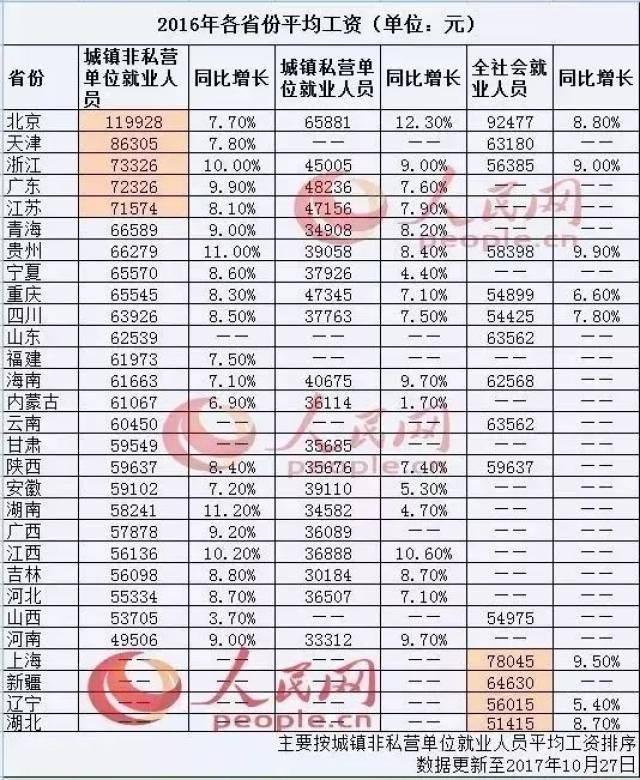 2016年各省份平均工资（单位：元）
省份 城镇非私营单位就业人员 同比增长 城镇私营单位就业人员 同比增长 全社会就业人员 同比增长
北京 119928 7.70% 65881 12.30% 92477 8.80%
天津 86305 7.80% —— —— 63180 ——
浙江 73326 10.00% 45005 9.00% 56385 9.00%
广东 72326 9.90% 48236 7.60% —— ——
江苏 71574 8.10% 47156 7.90% —— ——
青海 66589 9.00% 34908 8.20% —— ——
贵州 66279 11.00% 39058 8.40% 58398 9.90%
宁夏 65570 8.60% 37926 4.40% —— ——
重庆 65545 8.30% 47345 7.10% 54899 6.60%
四川 63926 8.50% 37763 7.50% 54425 7.80%
山东 62539 —— —— —— 63562 ——
福建 61973 7.50% —— —— —— ——
海南 61663 7.10% 40675 9.70% 62568 ——
内蒙古 61067 6.90% 36114 1.70% —— ——
云南 60450 —— —— —— 63562 ——
甘肃 59549 —— 35685 —— —— ——
陕西 59637 8.40% 35676 7.40% 59637 ——
安徽 59102 7.20% 39110 5.30% —— ——
湖南 58241 11.20% 34582 4.70% —— ——
广西 57878 9.20% 36089 —— —— ——
江西 56136 10.20% 36888 10.60% —— ——
吉林 56098 8.80% 30184 8.70% —— ——
河北 55334 8.70% 36507 7.10% —— ——
山西 53705 3.70% —— —— 54975 ——
河南 49506 9.00% 33312 9.70% —— ——
上海 —— —— —— —— 78045 9.50%
新疆 —— —— —— —— 64630 ——
辽宁 —— —— —— —— 56015 5.40%
湖北 —— —— —— —— 51415 8.70%
主要按城镇非私营单位就业人员平均工资排序
数据更新至2017年10月27日
人民网
people.cn
人民网
people.cn
人民网
people.cn